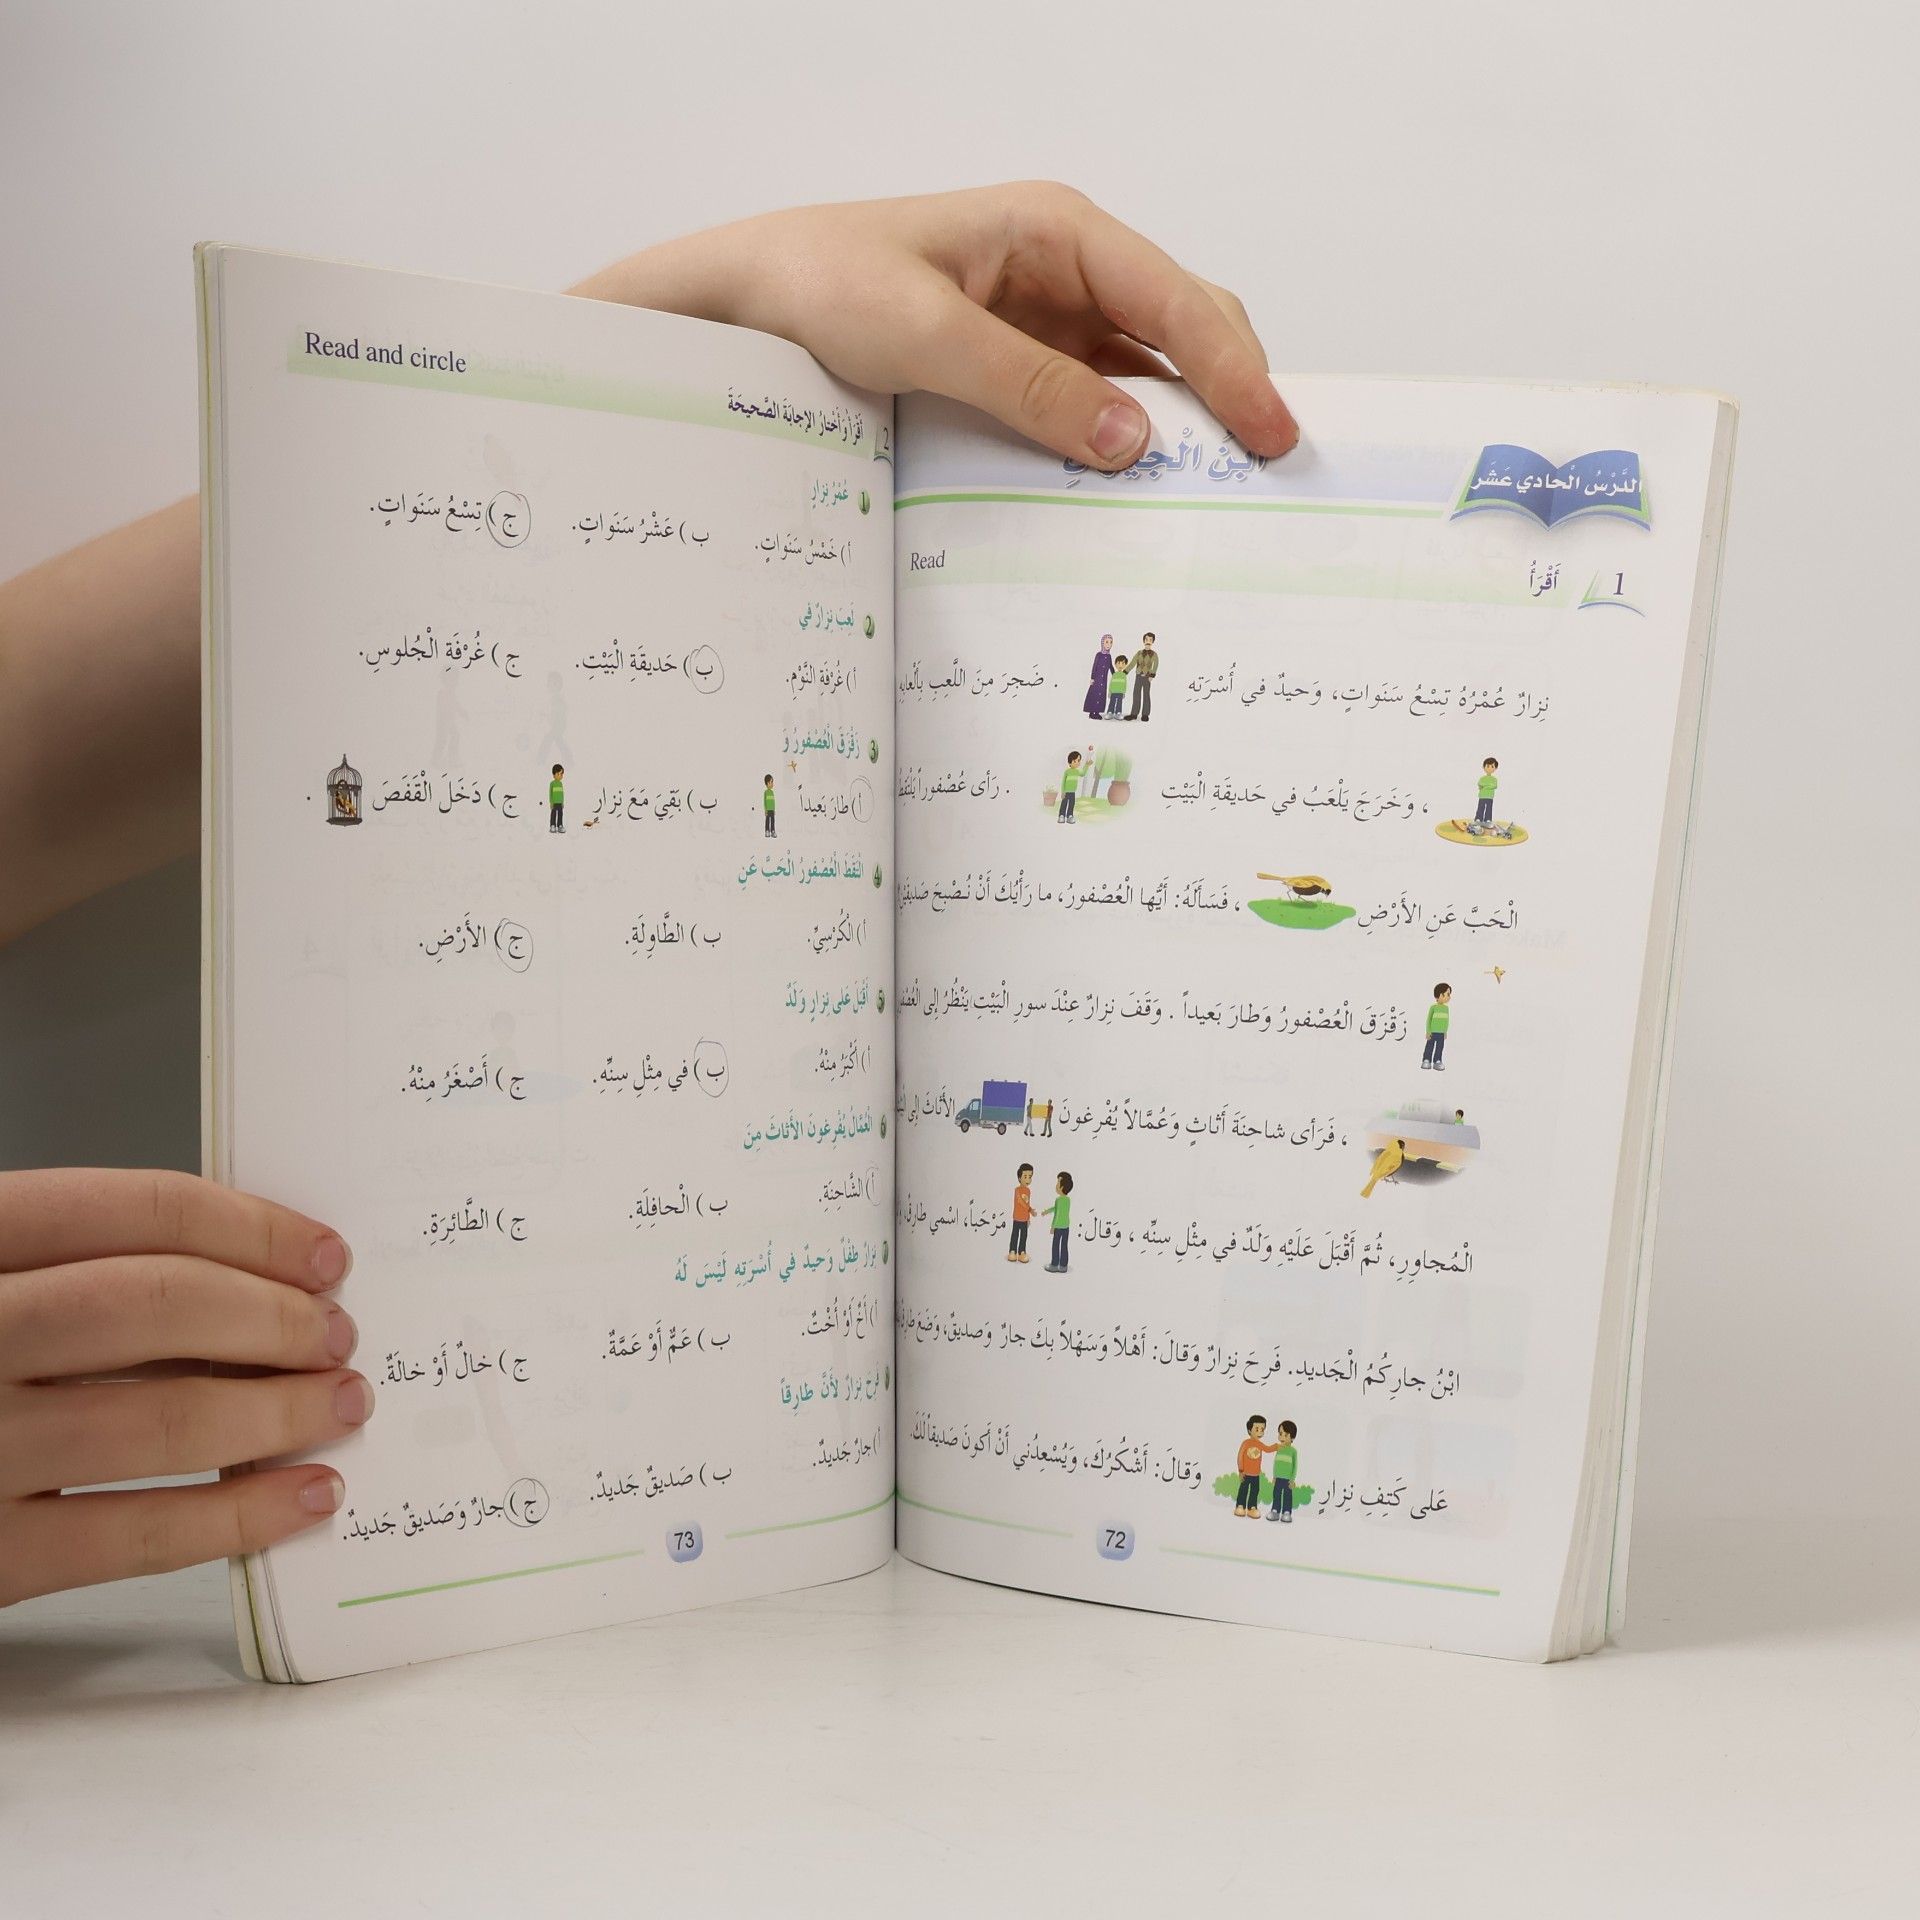 الدَّرْسُ الْحادي عَشَر
ابْنُ
1 أَقْرَأُ Read
نِزارٌ عُمْرُهُ تِسْعُ سَنَواتٍ، وَحيدٌ في أُسْرَتِهِ . ضَجِرَ مِنَ اللَّعِبِ بِأَلْعابِهِ
، وَخَرَجَ يَلْعَبُ في حَديقَةِ الْبَيْتِ . رَأى عُصْفوراً يَلْتَقِطُ
الْحَبَّ عَنِ الأَرْضِ ، فَسَأَلَهُ: أَيُّها الْعُصْفورُ، ما رَأْيُكَ أَنْ نُصْبِحَ
زَقْزَقَ الْعُصْفورُ وَطارَ بَعيداً . وَقَفَ نِزارٌ عِنْدَ سورِ الْبَيْتِ يَنْظُرُ إِلى
، فَرَأى شاحِنَةَ أَثاثٍ وَعُمَّالاً يُفْرِغونَ الأَثاثَ إِلى
الْمُجاوِرِ، ثُمَّ أَقْبَلَ عَلَيْهِ وَلَدٌ في مِثْلِ سِنِّهِ ، وَقالَ: مَرْحَباً، اسْمي طارِقٌ،
ابْنُ جارِكُمُ الْجَديدِ. فَرِحَ نِزارٌ وَقالَ: أَهْلاً وَسَهْلاً بِكَ جارٌ وَصديقٌ، وَضَعَ
عَلى كَتِفِ نِزارٍ وَقالَ: أَشْكُرُكَ، وَيُسْعِدُني أَنْ أَكونَ صَديقاً لَكَ.
72
Read and circle
2 أَقْرَأُ وَأَخْتارُ الإِجابَةَ الصَّحيحَةَ
1 عُمْرُ نِزارٍ
أ) خَمْسُ سَنَواتٍ. ب) عَشْرُ سَنَواتٍ. ج) تِسْعُ سَنَواتٍ.
2 لَعِبَ نِزارٌ في
أ) غُرْفَةِ النَّوْمِ. ب) حَديقَةِ الْبَيْتِ. ج) غُرْفَةِ الْجُلوسِ.
3 زَقْزَقَ الْعُصْفورُ وَ
أ) طارَ بَعيداً . ب) بَقِيَ مَعَ نِزارٍ . ج) دَخَلَ الْقَفَصَ .
4 الْتَقَطَ الْعُصْفورُ الْحَبَّ عَنِ
أ) الْكُرْسِيِّ. ب) الطَّاوِلَةِ. ج) الأَرْضِ.
5 أَقْبَلَ عَلى نِزارٍ وَلَدٌ
أ) أَكْبَرُ مِنْهُ. ب) في مِثْلِ سِنِّهِ. ج) أَصْغَرُ مِنْهُ.
6 الْعُمَّالُ يُفْرِغونَ الأَثاثَ مِنَ
أ) الشَّاحِنَةِ. ب) الْحافِلَةِ. ج) الطَّائِرَةِ.
7 نِزارٌ طِفْلٌ وَحيدٌ في أُسْرَتِهِ لَيْسَ لَهُ
أ) أَخٌ أَوْ أُخْتٌ. ب) عَمٌّ أَوْ عَمَّةٌ. ج) خالٌ أَوْ خالَةٌ.
فَرِحَ نِزارٌ لأَنَّ طارِقاً
أ) جارٌ جَديدٌ. ب) صَديقٌ جَديدٌ. ج) جارٌ وَصَديقٌ جَديدٌ.
73